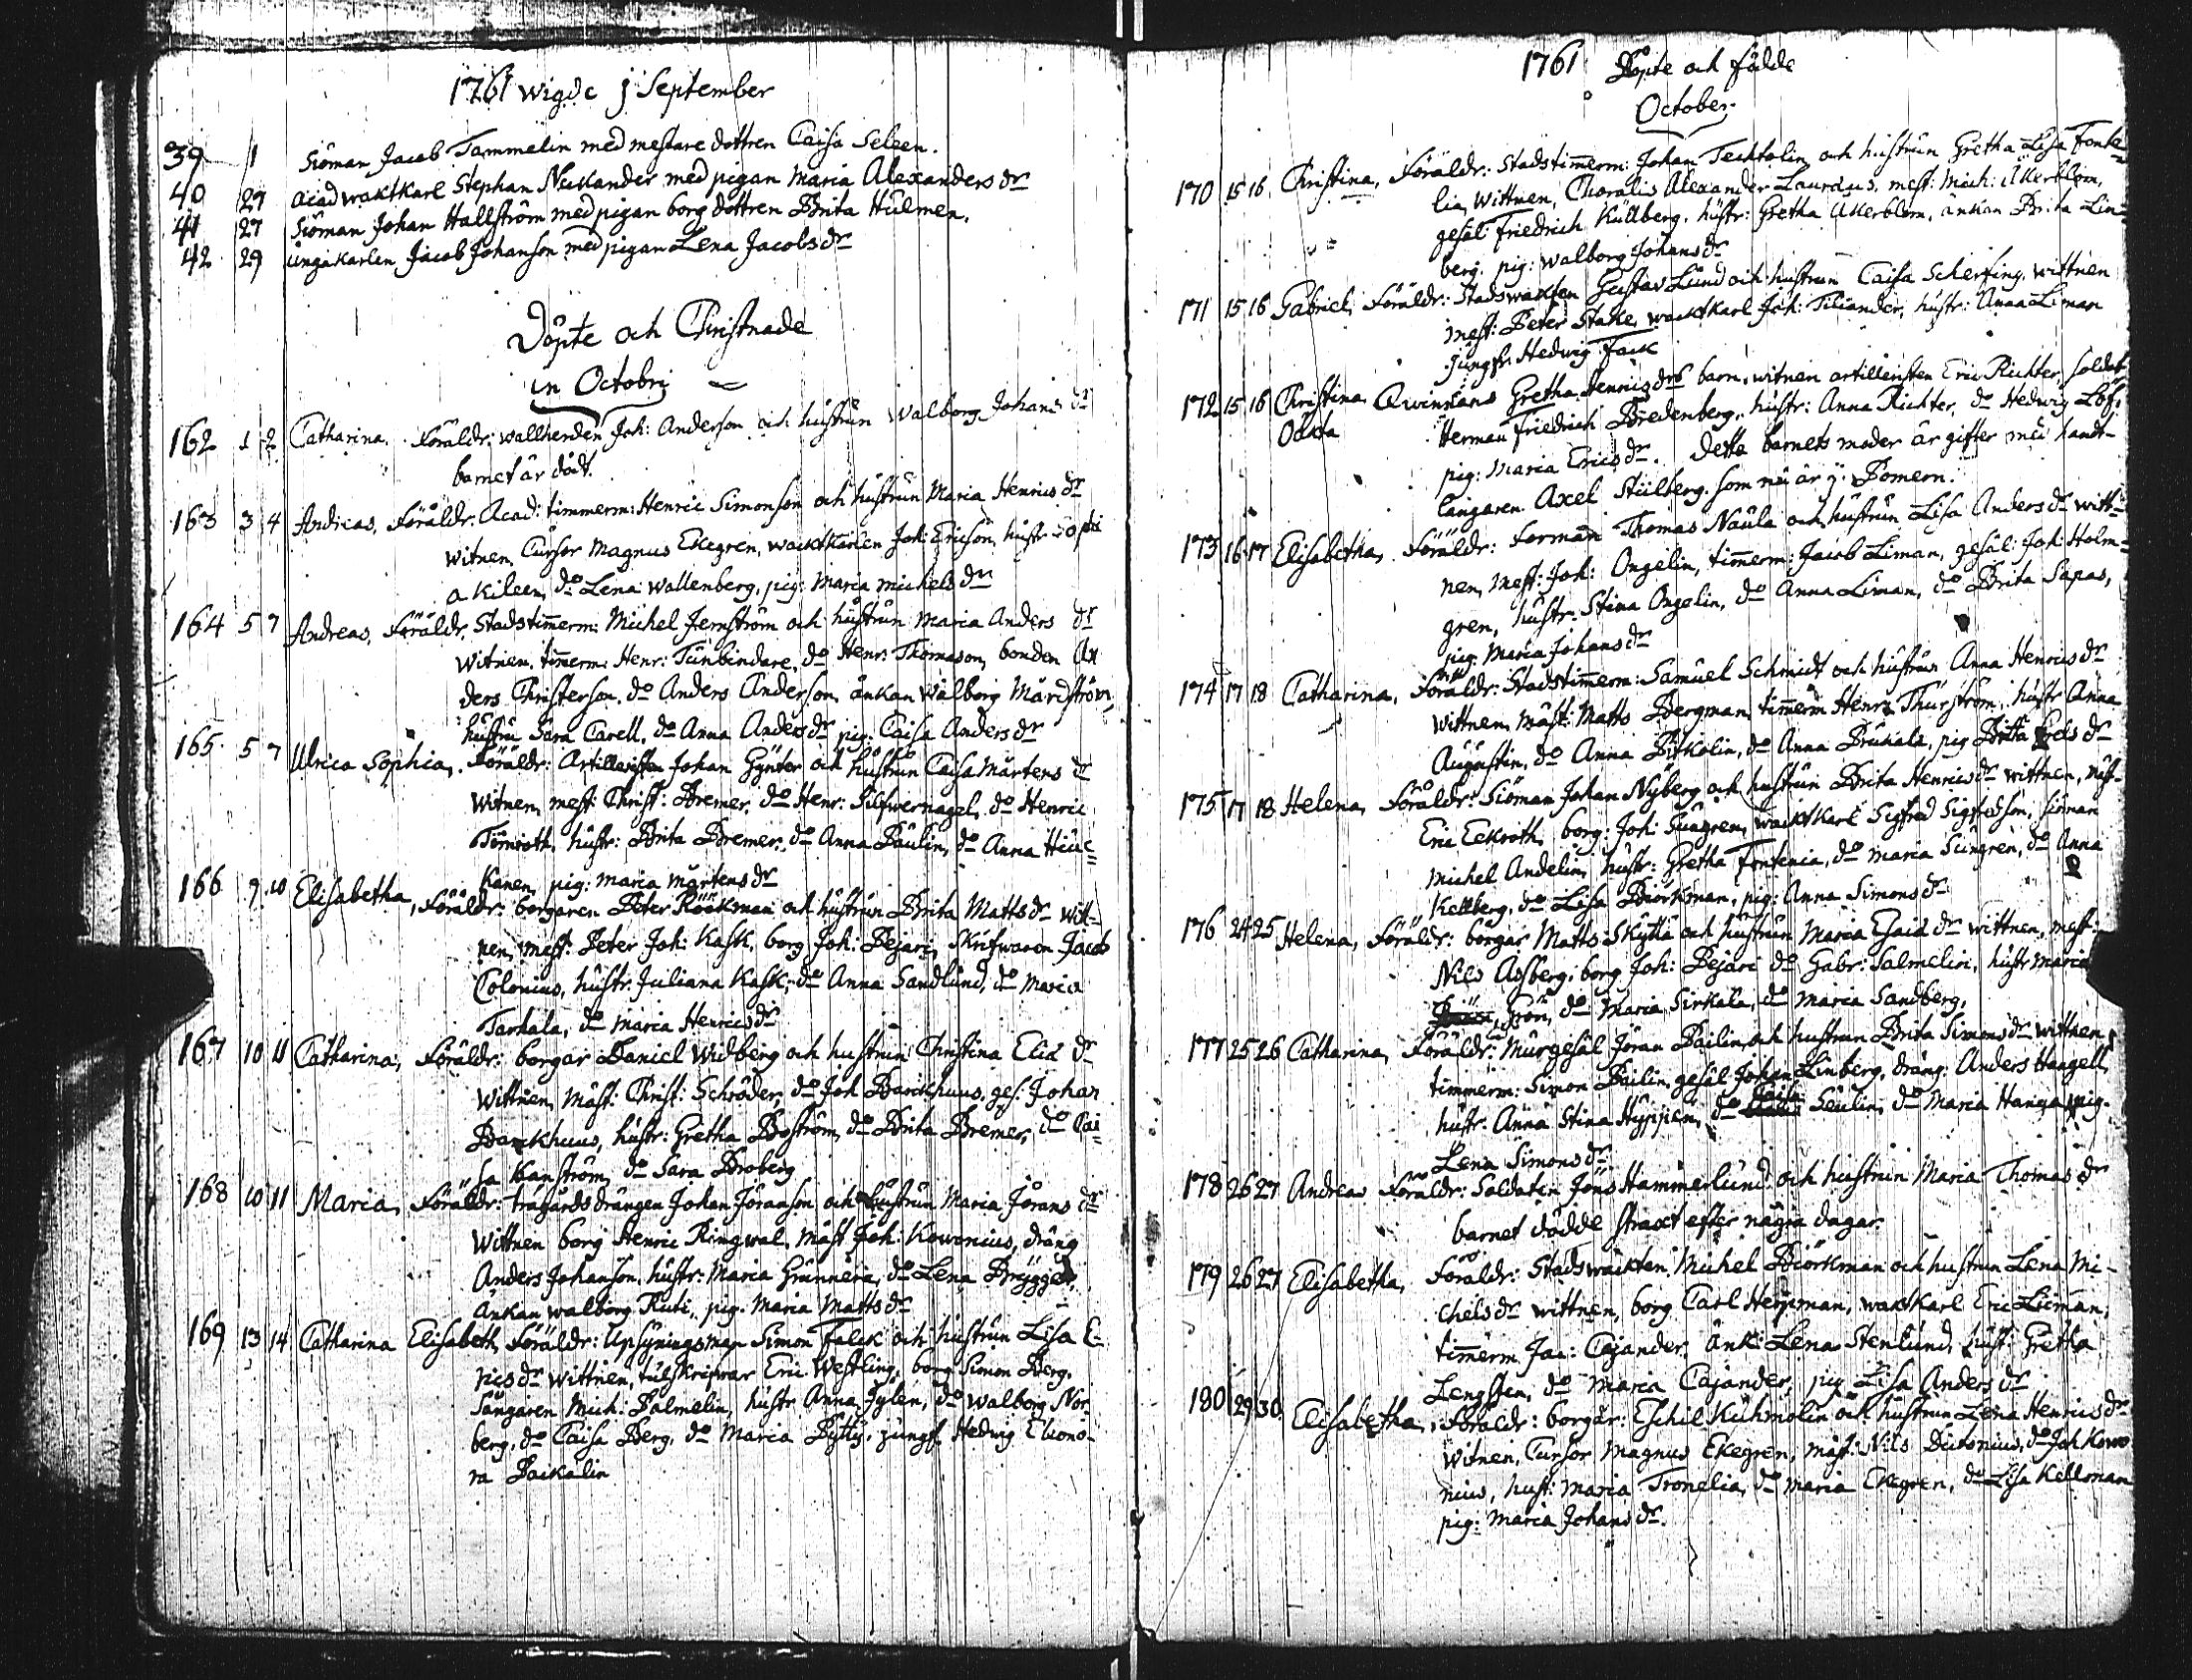 1761 wigde j September
39 1 Siöman Jacob Tammelin med mestare dottren Caisa Seleen.
40 29 acad waktkarl Stephan Neukander med pigan Maria Alexanders dr
41 27 Siöman Johan Hallström med pigan borg dottren Brita Hulmen.
42 29 ungakarlen Jacob Johanson med pigan Lena Jacobs dr
Döpte och Christnade
in Octobri
162 1 2 Catharina. Föräldr: wallherden Joh: Anderson och hustrun Walborg Johans dr
barnet är dödt.
163 3 4 Andreas, Föräldr. Acad: timmerm: Henric Simonson och hustrun Maria Henrics dr
witnen Cursor Magnus Ekegren, wacktkarlen Joh: Ericson, hustr Sophi
a Kileen, do Lena Wallenberg, pig: Maria michels dr
164 5 7 Andreas, Föräldr. Stadstimerm: Michel Jernström och hustrun Maria Anders dr
witnen, timerm: Henr: Tunbindare, do Henr: Thomason, bonden An
ders Christerson, do Anders Anderson, änkan Walborg Mårdström,
hustru Sara Carell, do Anna Anders dr pig: Caisa Anders dr
165 5 7 Ulrica Sophia, Föräldr: Artilleristen Johan Gynter och hustrun Caisa Mårtens dr
witnen, mest: Christ: Bremer, do Henr: Silfwernagel, do Henric
Törnroth, hustr: Brita Bremer, do Anna Paulin, do Anna Heic=
kanen, pig: Maria Mårtens dr
166 9 10 Elisabetha, Föräldr: borgaren Peter Röökman och hustrun Brita Matts dr witt=
nen, mest: Peter Joh: Kask, borg Joh: Pejari, Skrifwaren Jacob
Colonius, hustr. Juliana Kask, do Anna Sandlund, do Maria
Tarhala, do Maria Henrics dr
167 10 11 Catharina, Föräldr: borgar Daniel Widberg och hustrun Christina Elia dr
wittnen, mäst: Christ: Schröder, do Joh Barckhuus, ges: Johan
Barckhuus, hustr: Gretha Boström, do Brita Bremer, do Cai=
sa Kanström, do Sara Broberg
168 10 11 Maria, Föräldr: trägårds drängen Johan Jöranson och hustrun Maria Jörans dr
wittnen borg Henric Ringwal, mäst Joh: Kowonius, dräng
Anders Johanson, hustr: Maria Grunnera, do Lena
Änkan walborg Ruti, pig: Maria Matts dr
169 13 14 Catharina Elisabeth, Föräldr: Upsyningsman Simon Falck och hustrun Lisa E=
rics dr wittnen, tulskrifwar Eric Westling, borg Simon Berg,
Sångaren Mich: Palmelin, hustr Anna Jylen, do Walborg Nor
berg, do Caisa Berg, do Maria Pytty, jungf Hedwig Eleono=
ra Paikalin
1761 Döpte och födde
October.
170 15 16 Christina, Föräldr: Stadstimerm: Johan Tecktolin och hustrun Gretha Lisa Fonte=
lia, Wittnen, Choralis Alexander Lauraeus, mest: Mich: Åkerblom,
gesäl Friedrich Kullberg, hustr: Gretha Åkerblom, änkan Brita Lin=
berg, pig: walborg Johans dr
171 15 16 Gabriel, Föräldr: Stadswakten Gustav Lund och hustrun Caisa Scherfing, wittnen
mest: Peter Stake, wacktkarl Joh: Tiliander, hustr: Anna Liman
jungfr Hedwig Fack
172 15 16 Christina Qwinnans Gretha Henrics drs barn, witnen artilleristen Eric Richter, soldat
Oäkta Herman Friedrich Bredenberg, hustr: Anna Richter, do Hedwig Löf,
pig: Maria Erics dr. Detta barnets moder är gifter med handt-
langaren Axel Stulberg som nu är j Pomern.
173 16 17 Elisabetha, Föräldr: Forman Thomas Naula och hustrun Lisa Anders dr witt=
nen, mest: Joh: Ongelin, timerm: Jacob Liman, gesäl: Joh: Holm=
gren, hustr: Stina Ongelin, do Anna Liman, do Brita Sapas,
pig: Maria Johans dr
174 17 18 Catharina, Föräldr: Stadstimerm: Samuel Schmidt och hustrun Anna Henrics dr
wittnen, mäst: Matts Bergman, timerm Henr: Thurström, hustr Anna
Augustin, do Anna Pitkolin, do Anna Brukala, pig Brita dr
175 17 18 Helena, Föräldr: Siöman Johan Nyberg och hustrun Brita Henrics dr wittnen,
Eric Eckroth, borg: Joh: Sungren, wacktkarl Sigfred Sigfredson, siöman
Michel Andelin, hustr: Gretha Fontenia, do Maria Sungren, do Anna
Kellberg, do Lisa Biörkman, pig: Anna Simons dr
176 24 25 Helena, Föräldr: borgar Matts Skyttä och hustrun Maria Esaia dr wittnen, mest:
Nils Asberg, borg Joh: Pejari do Gabr: Salmelin, hustr Maria
Grön, do Maria Sirkala, do Maria Sandberg,
177 25 26 Catharina, Föräldr: Murgesäl Jöran Pailin och hustrun Brita Simons dr wittnen,
timmerm: Simon Pailin, gesäl Johan Linberg, dräng: Anders Haagell,
hustr: Anna Stina Hyppien, do Caisa Seulin, do Maria Hanga, pig.
Lena Simons dr
178 26 27 Andreas Föräldr: Soldaten Jöns Hammerlund och hustrun Maria Thomas dr
barnet dödde straxt efter några dagar.
179 26 27 Elisabetha, Föräldr: Stadswackten Michel Biörkman och hustrun Lena Mi-
chels dr wittnen, borg Carl Herpman, waktkarl Eric Liiman,
timerm Jac: Cajander, änk: Lena Stenlund, hust: Gretha
Lengsten, do Maria Cajander, pig Lisa Anders dr
180 29 30 Elisabetha, Föräldr: borgar: Eschil Kuhmolin och hustrun Lena Henrics dr
witnen, Cursor Magnus Ekegren, mäst: Nils Deutonius, do Joh Kowo
nius, hust: Maria Tronelia, do Maria Ekegren, do Lisa Kellman
pig: Maria Johans dr.